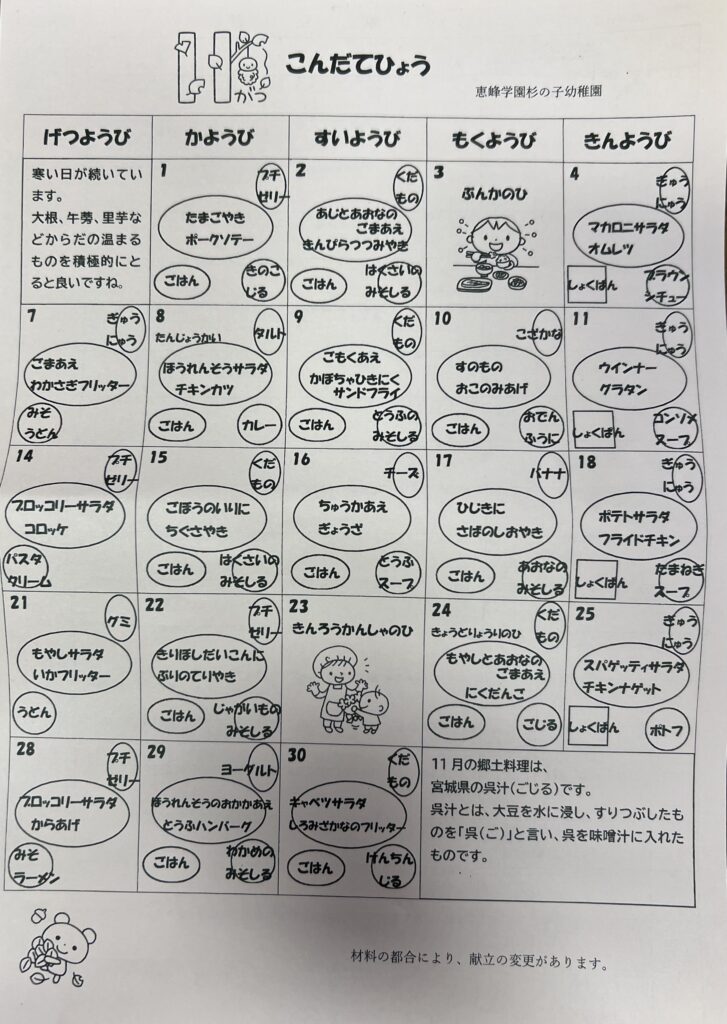 11がつ
こんだてひょう
恵峰学園杉の子幼稚園
げつようび
かようび
すいようび
もくようび
きんようび
寒い日が続いてい
ます。
大根、午蒡、里芋な
どからだの温まる
ものを積極的にと
ると良いですね。
1
プチ
ゼリー
たまごやき
ポークソテー
ごはん
きのこ
じる
2
くだ
もの
あじとあおなの
ごまあえ
きんぴらつつみやき
ごはん
はくさいの
みそしる
3
ぶんかのひ
4
ぎゅう
にゅう
マカロニサラダ
オムレツ
しょくぱん
ブラウン
シチュー
7
ぎゅう
にゅう
ごまあえ
わかさぎフリッター
みそ
うどん
8
たんじょうかい
タルト
ほうれんそうサラダ
チキンカツ
ごはん
カレー
9
くだ
もの
ごもくあえ
かぼちゃひきにく
サンドフライ
ごはん
とうふの
みそしる
10
こざかな
すのもの
おこのみあげ
ごはん
おでん
ふうに
11
ぎゅう
にゅう
ウインナー
グラタン
しょくぱん
コンソメ
スープ
14
プチ
ゼリー
ブロッコリーサラダ
コロッケ
パスタ
クリーム
15
くだ
もの
ごぼうのいりに
ちぐさやき
ごはん
はくさいの
みそしる
16
チーズ
ちゅうかあえ
ぎょうざ
ごはん
とうふ
スープ
17
バナナ
ひじきに
さばのしおやき
ごはん
あおなの
みそしる
18
ぎゅう
にゅう
ポテトサラダ
フライドチキン
しょくぱん
たまねぎ
スープ
21
グミ
もやしサラダ
いかフリッター
うどん
22
プチ
ゼリー
きりぼしだいこんに
ぶりのてりやき
ごはん
じゃがいもの
みそしる
23
きんろうかんしゃのひ
24
くだ
もの
きょうどりょうりのひ
もやしとあおなの
ごまあえ
にくだんご
ごはん
ごじる
25
ぎゅう
にゅう
スパゲッティサラダ
チキンナゲット
しょくぱん
ポトフ
28
プチ
ゼリー
ブロッコリーサラダ
からあげ
みそ
ラーメン
29
ヨーグルト
ほうれんそうのおかかあえ
とうふハンバーグ
ごはん
わかめの
みそしる
30
くだ
もの
キャベツサラダ
しろみざかなのフリッター
ごはん
けんちん
じる
11月の郷土料理は、
宮城県の呉汁(ごじる)です。
呉汁とは、大豆を水に浸し、すりつぶしたも
のを「呉(ご)」と言い、呉を味噌汁に入れた
ものです。
材料の都合により、献立の変更があります。